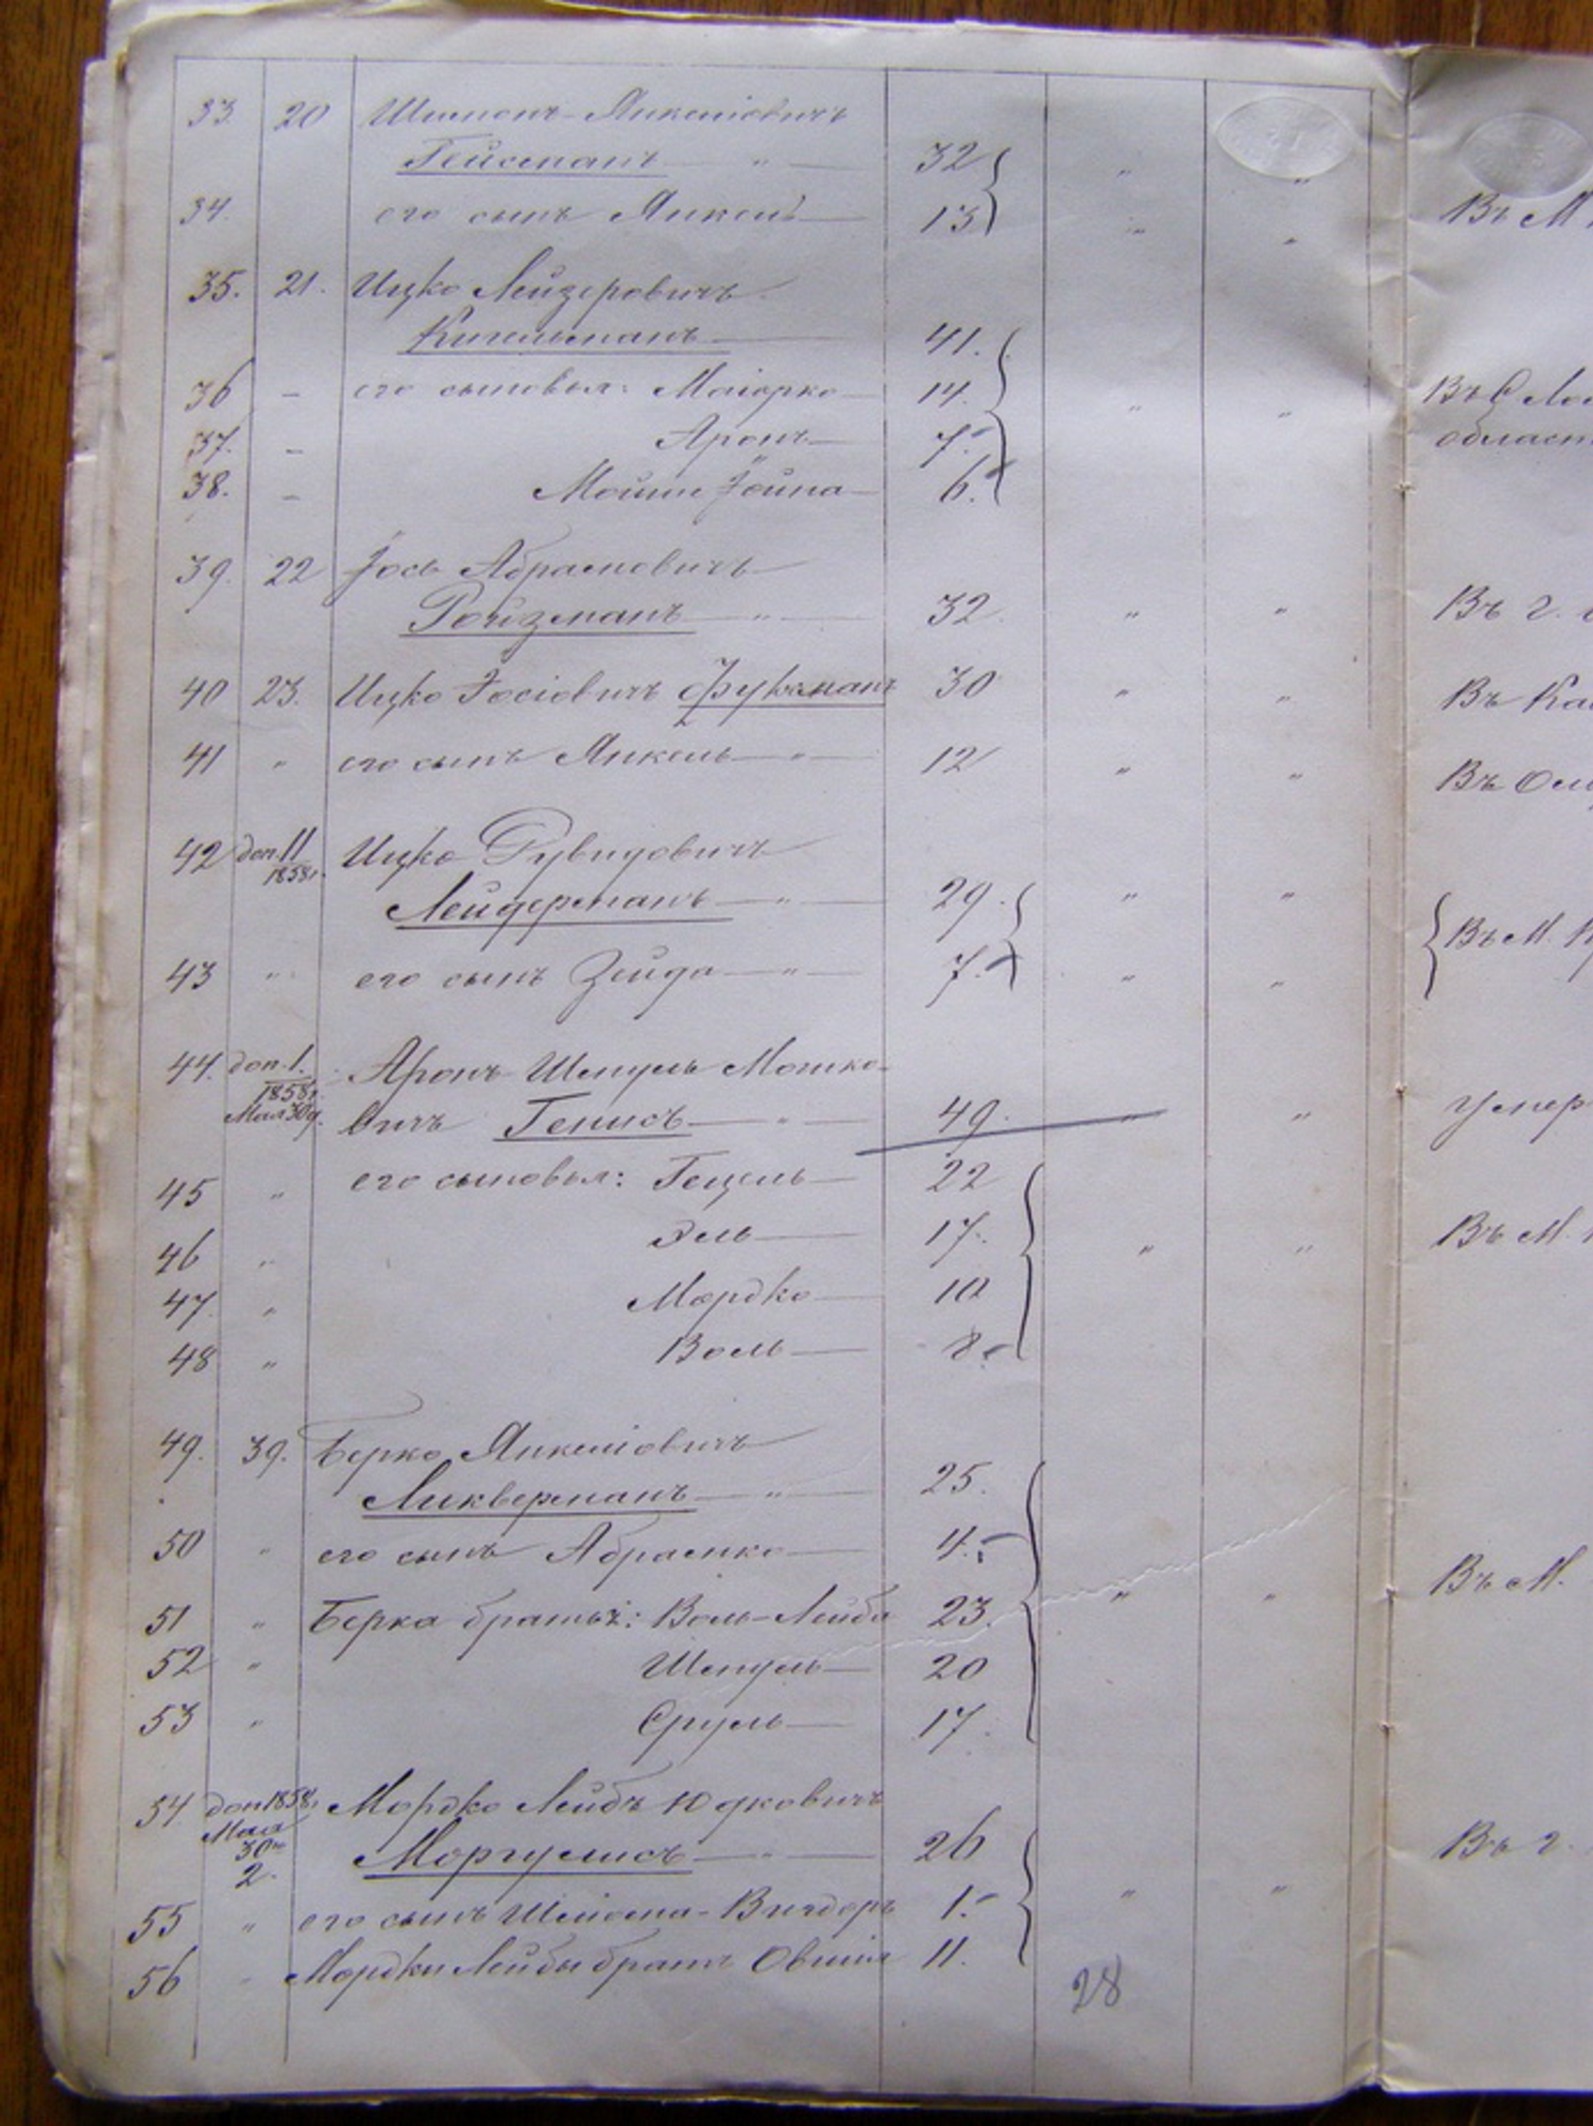 33. 20 Шимонъ Янкеліовичъ
Гейсманъ — " — 32 " "
34. его сынъ Янкель — 13 " "
35. 21. Ицко Лейзеровичъ
Кигельманъ — 41.
36 – его сыновья: Маіорко — 14. " "
37. – Аронъ — 7.
38. – Мойши Іойна — 6.
39. 22 Іось Абрамовичъ —
Ройзманъ — " — 32 " "
40 23. Ицко Іосіовичъ Фуксманъ 30 " "
41 " его сынъ Янкель — " — 12 " "
42 доп. 11 Ицко Рувидовичъ
1858г.
Лейдерманъ — " — 29. " "
43 " его сынъ Зейда — " — 7. " "
44. доп. 1. Аронъ Шмуль Мошко-
1858г.
Мая 30д. вичъ Генисъ — " — 49. " "
45 " его сыновья: Гецель — 22
46 " Эль — 17. " "
47. " Мордко — 10
48 " Воль — 8.
49. 39. Берко Янкеліовичъ
Ликверманъ — " — 25.
50 " его сынъ Абрамко — 4.
51 " Берка братья: Воль-Лейба 23. " "
52 " Шмуль — 20
53 " Сруль — 17.
54. доп 1858г. Мордко Лейбъ Юдковичъ
Мая
30
2. Моргулисъ — " — 26
55 " его сынъ Шлиома-Вигдоръ 1. " "
56 " Мордки Лейбы братъ Овшія 11.
28
Въ М.
Въ С
Въ г.
Въ
Въ
Въ М.
Умер
Въ М.
Въ М.
Въ г.